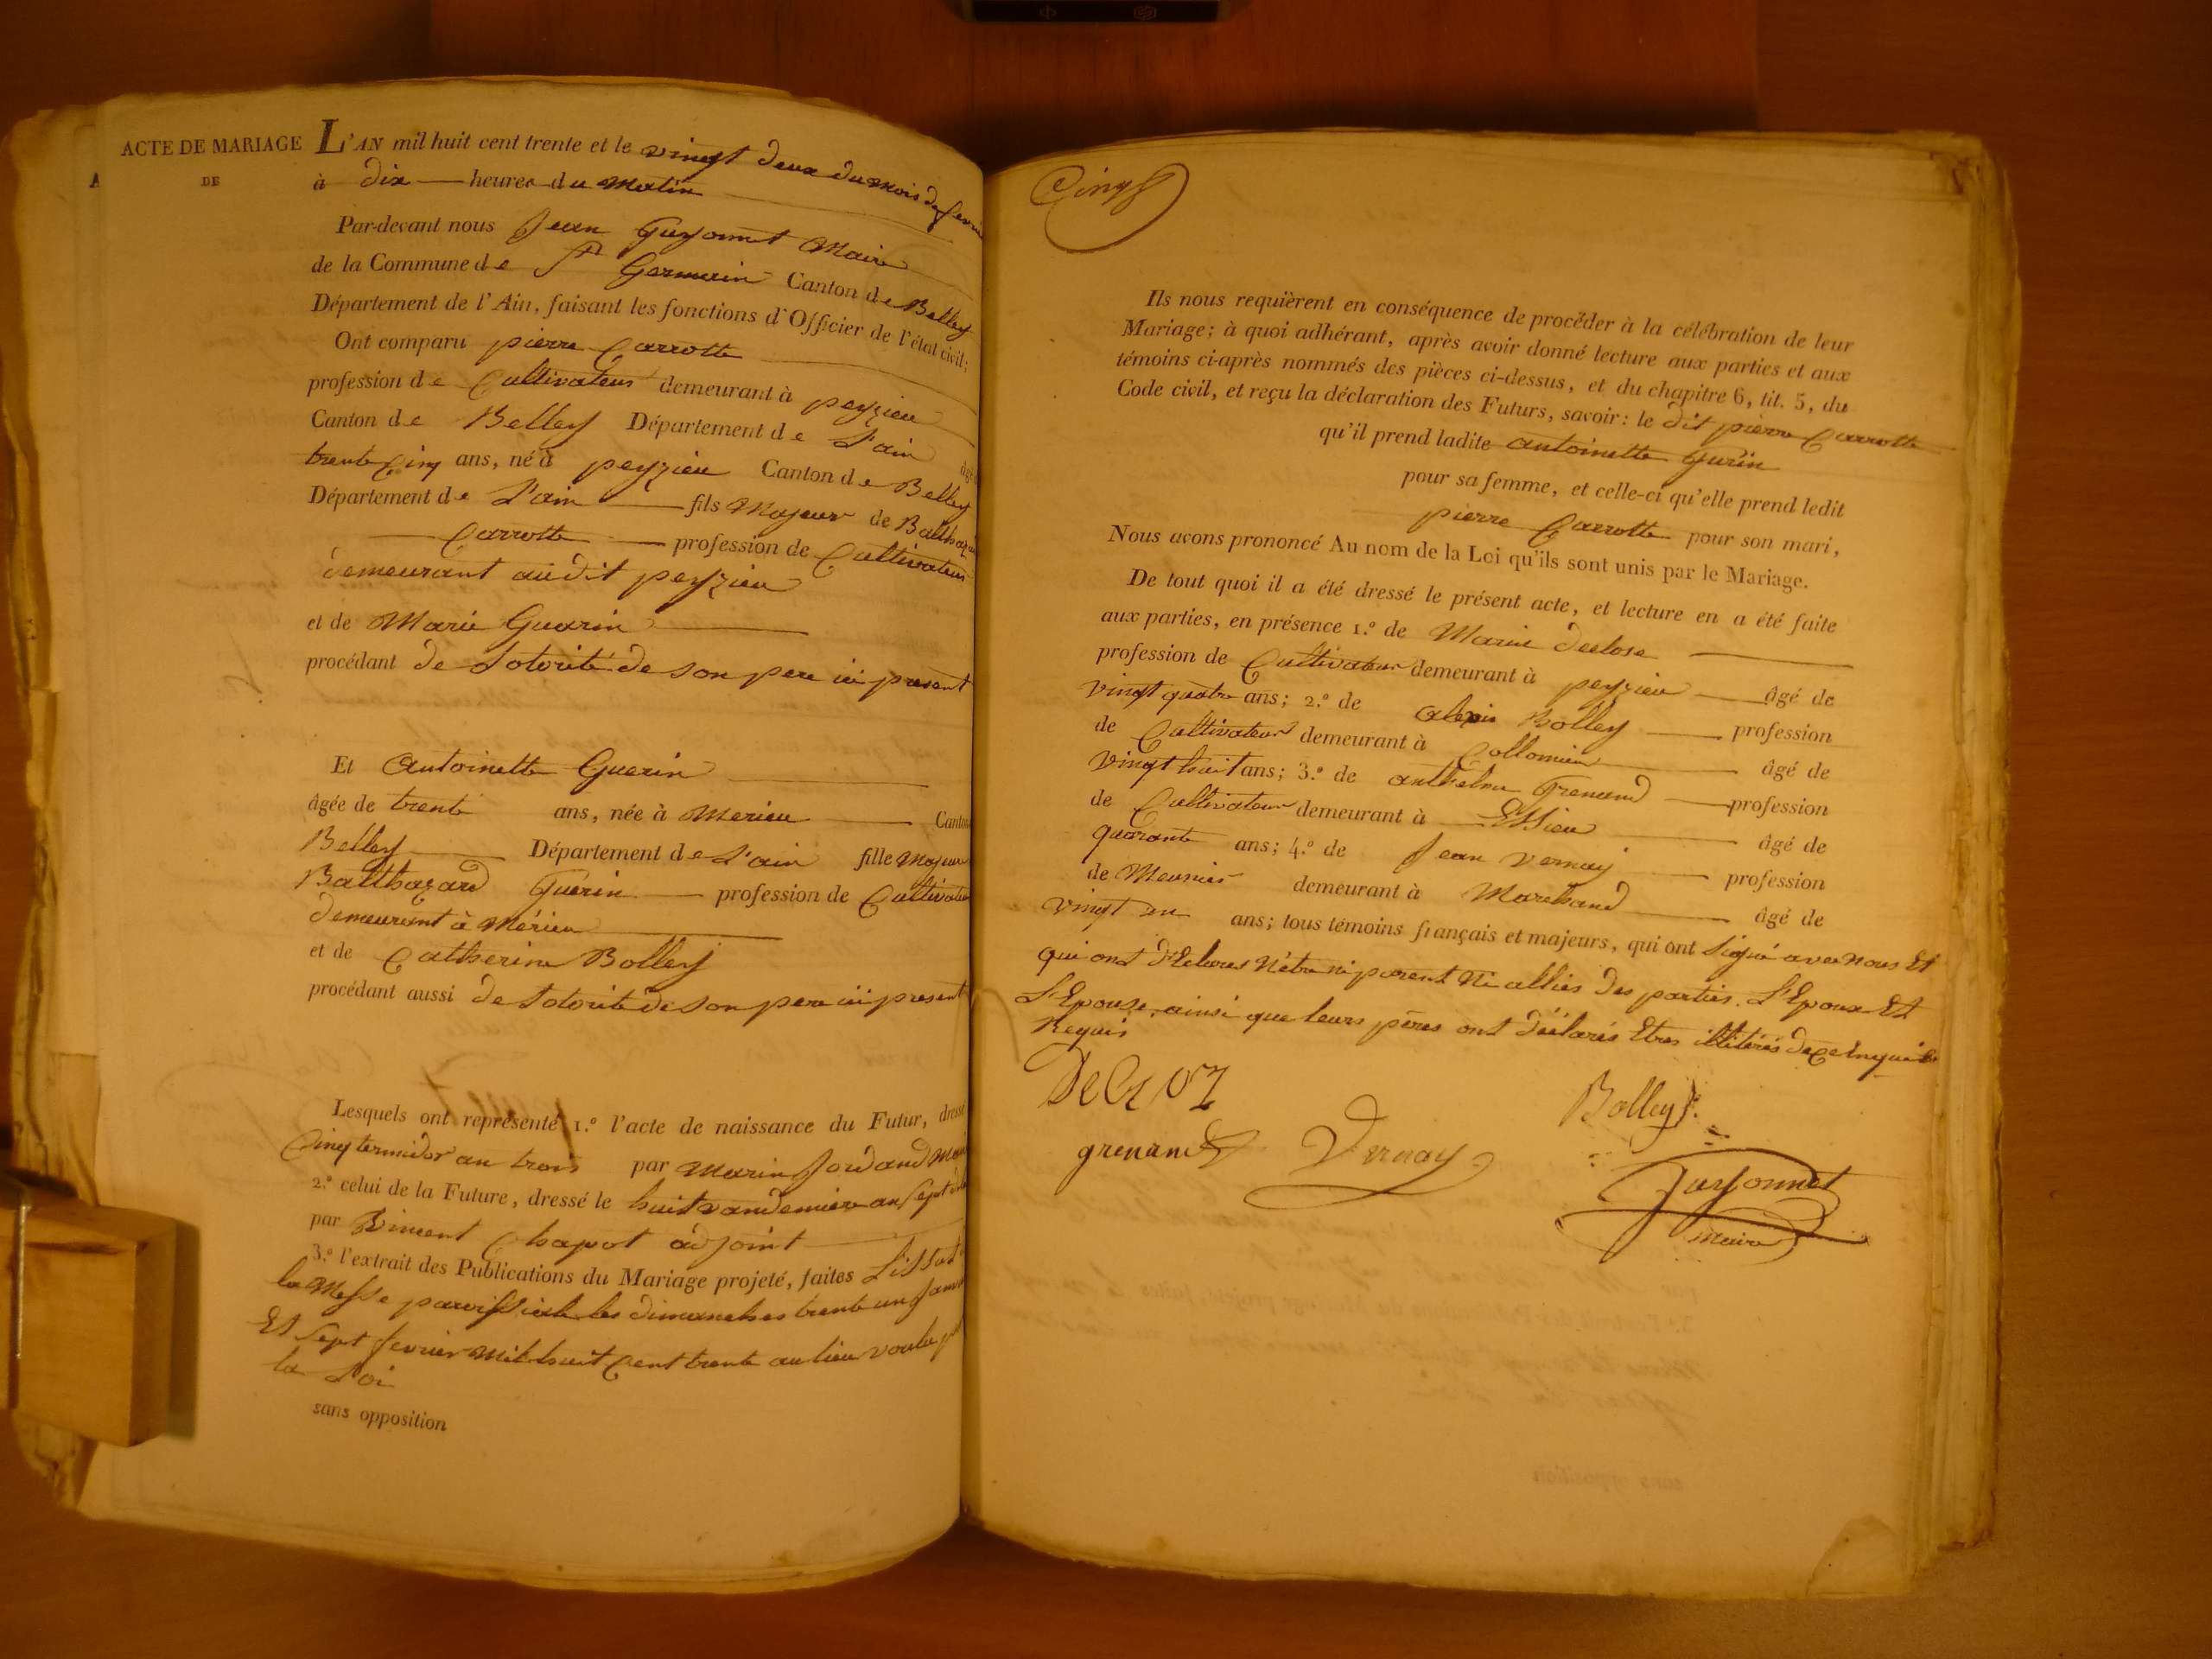 ACTE DE MARIAGE
DE
L'AN mil huit cent trente et le vingt deux du mois de fevrie
à dix heures du Matin
Par-devant nous Jean Guyonnet Maire
de la Commune de St Germain Canton de Belley
Département de l'Ain, faisant les fonctions d'Officier de l'état civil;
Ont comparu pierre Carrotte
profession de Cultivateur demeurant à peyzieu
Canton de Belley Département de L'ain âgé
trente Cinq ans, né à peyzieu Canton de Belley
Département de L'ain fils Majeur de Balthaza
Carrotte profession de Cultivateur
demeurant audit peyzieu
et de Marie Guerin
procédant de Lotorité de son pere ici present
Et Antoinette Guerin
âgée de trente ans, née à Merieu Canton
Belley Département de L'ain fille Majeur
Balthazard Guérin profession de Cultivateu
demeurant à Mérieu
et de Catherine Bolley
procédant aussi de Lotorité de son pere ici present
Lesquels ont représenté 1.º l'acte de naissance du Futur, dressé
Cinq termidor an trois par Marin Jordand Mai
2.º celui de la Future, dressé le huit vandemiere an sept
par Vincent Chapot adjoint
3.º l'extrait des Publications du Mariage projeté, faites L'issut
la Messe parroissiale les dimanches trente un Janv
Et Sept fevrier Mil huit Cent trente au lieu voulu p
la Loi
sans opposition
Cinq
Ils nous requièrent en conséquence de procéder à la célébration de leur
Mariage; à quoi adhérant, après avoir donné lecture aux parties et aux
témoins ci-après nommés des pièces ci-dessus, et du chapitre 6, tit. 5, du
Code civil, et reçu la déclaration des Futurs, savoir: le dit pierre Carrotte
qu'il prend ladite antoinette Guérin
pour sa femme, et celle-ci qu'elle prend ledit
pierre Carrotte pour son mari,
Nous avons prononcé Au nom de la Loi qu'ils sont unis par le Mariage.
De tout quoi il a été dressé le présent acte, et lecture en a été faite
aux parties, en présence 1.º de Marin declose
profession de Cultivateur demeurant à peyzieu âgé de
vingt quatre ans; 2.º de alexis Bolley profession
de Cultivateur demeurant à Collomieu âgé de
vingt huit ans; 3.º de anthelme Grenand profession
de Cultivateur demeurant à Essieu âgé de
quarante ans; 4.º de Jean Vernay profession
de Meunier demeurant à Marchand âgé de
vingt un ans; tous témoins français et majeurs, qui ont Signé avec nous Et
qui ont déclares N'être ni parent Ni alliés des parties. L'Epoux Et
L'Epouse, ainsi que leurs pères ont déclarés Etres illitérés de ce enquis
Requis
Bolley
grenand Vernay
Guyonnet
Maire